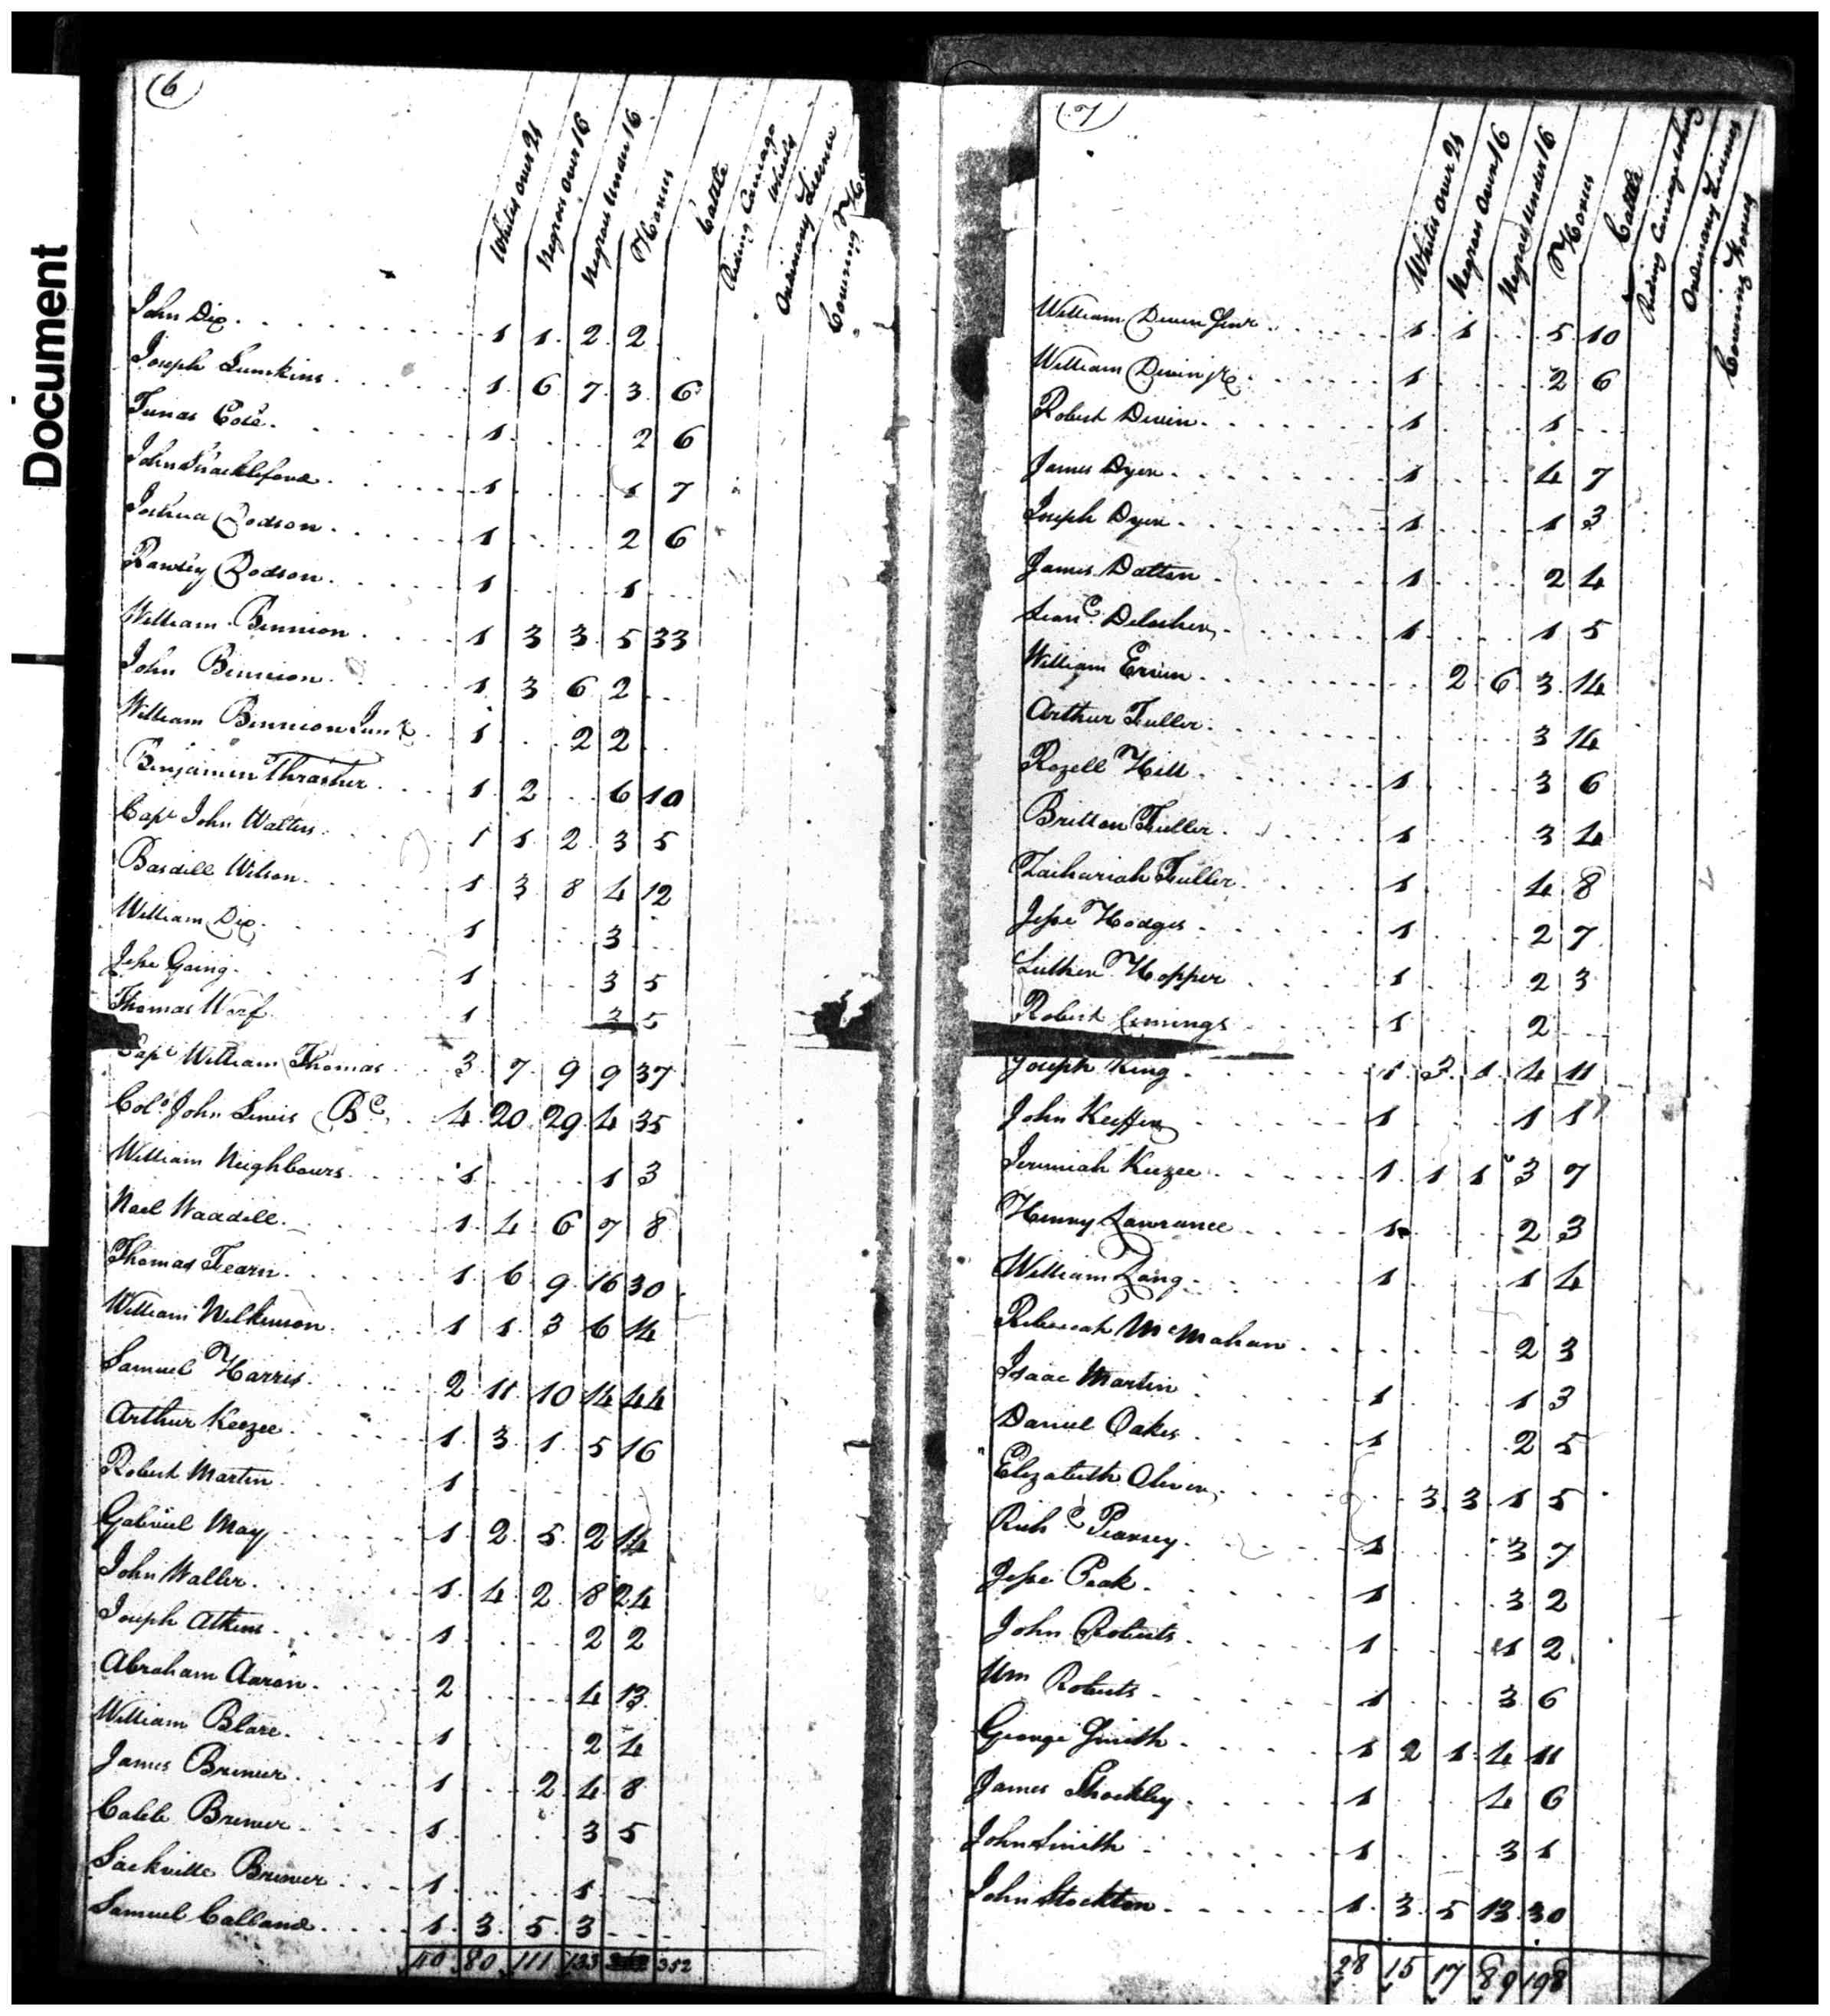 Document
(6)
Whites over 21
Negroes over 16
Negroes under 16
Horses
Cattle
Riding Carriage Wheels
Ordinary License
Covering Ho.
John Dix 1 1 2 2
Joseph Lumkins 1 6 7 3 6
Tunas Cole 1 2 6
John Shackleford 1 1 7
Joshua Dodson 1 2 6
Rawley Dodson 1 1
William Bennion 1 3 3 5 33
John Bennion 1 3 6 2
William Bennion Junr 1 2 2
Benjamin Thrasher 1 2 6 10
Capt John Walters 1 1 2 3 5
Basdell Wilson 1 3 8 4 12
William Dix 1 3
Jesse Going 1 3 5
Thomas Worf 1 3 5
Capt William Thomas 3 7 9 9 37
Colo John Lewis 4 20 29 4 35
William Neighbours 1 1 3
Noel Waddill 1 4 6 7 8
Thomas Fearn 1 6 9 16 30
William Wilkinson 1 1 3 6 14
Samuel Harris 2 11 10 14 44
Arthur Keezee 1 3 1 5 16
Robert Martin 1
Gabriel May 1 2 5 2 14
John Waller 1 4 2 8 24
Joseph Atkins 1 2 2
Abraham Aaron 2 4 13
William Blare 1 2 4
James Brewer 1 2 4 8
Caleb Brewer 1 3 5
Sackville Brewer 1 1
Samuel Calland 1 3 5 3
40 80 111 133 352
(7)
Whites over 21
Negroes over 16
Negroes Under 16
Horses
Cattle
Riding Carriage Wheels
Ordinary Licenses
Covering Horses
William Devin Senr 1 1 5 10
William Devin Jr 1 2 6
Robert Devin 1 1
James Dyer 1 4 7
Joseph Dyer 1 1 3
James Dalton 1 2 4
Delosher 1 1 5
William Ervin 2 6 3 14
Arthur Fuller 3 14
Rozell Hill 1 3 6
Britton Fuller 1 3 4
Zachariah Fuller 1 4 8
Jesse Hodges 1 2 7
Luther Hopper 1 2 3
Robert Jinnings 1 2
Joseph King 1 3 1 4 11
John Keiffer 1 1 1
Jeremiah Keezee 1 1 1 3 7
Henny Lawrance 1 2 3
William Long 1 1 4
Rebeccah McMahan 2 3
Isaac Martin 1 1 3
Daniel Oakes 1 2 5
Elizabeth Oliver 3 3 1 5
Richd Pearsey 1 3 7
Jesse Peak 1 3 2
John Roberts 1 1 2
Wm Roberts 1 3 6
George Smith 1 2 1 4 11
James Shockley 1 4 6
John Smith 1 3 1
John Stockton 1 3 5 13 30
28 15 17 89 198